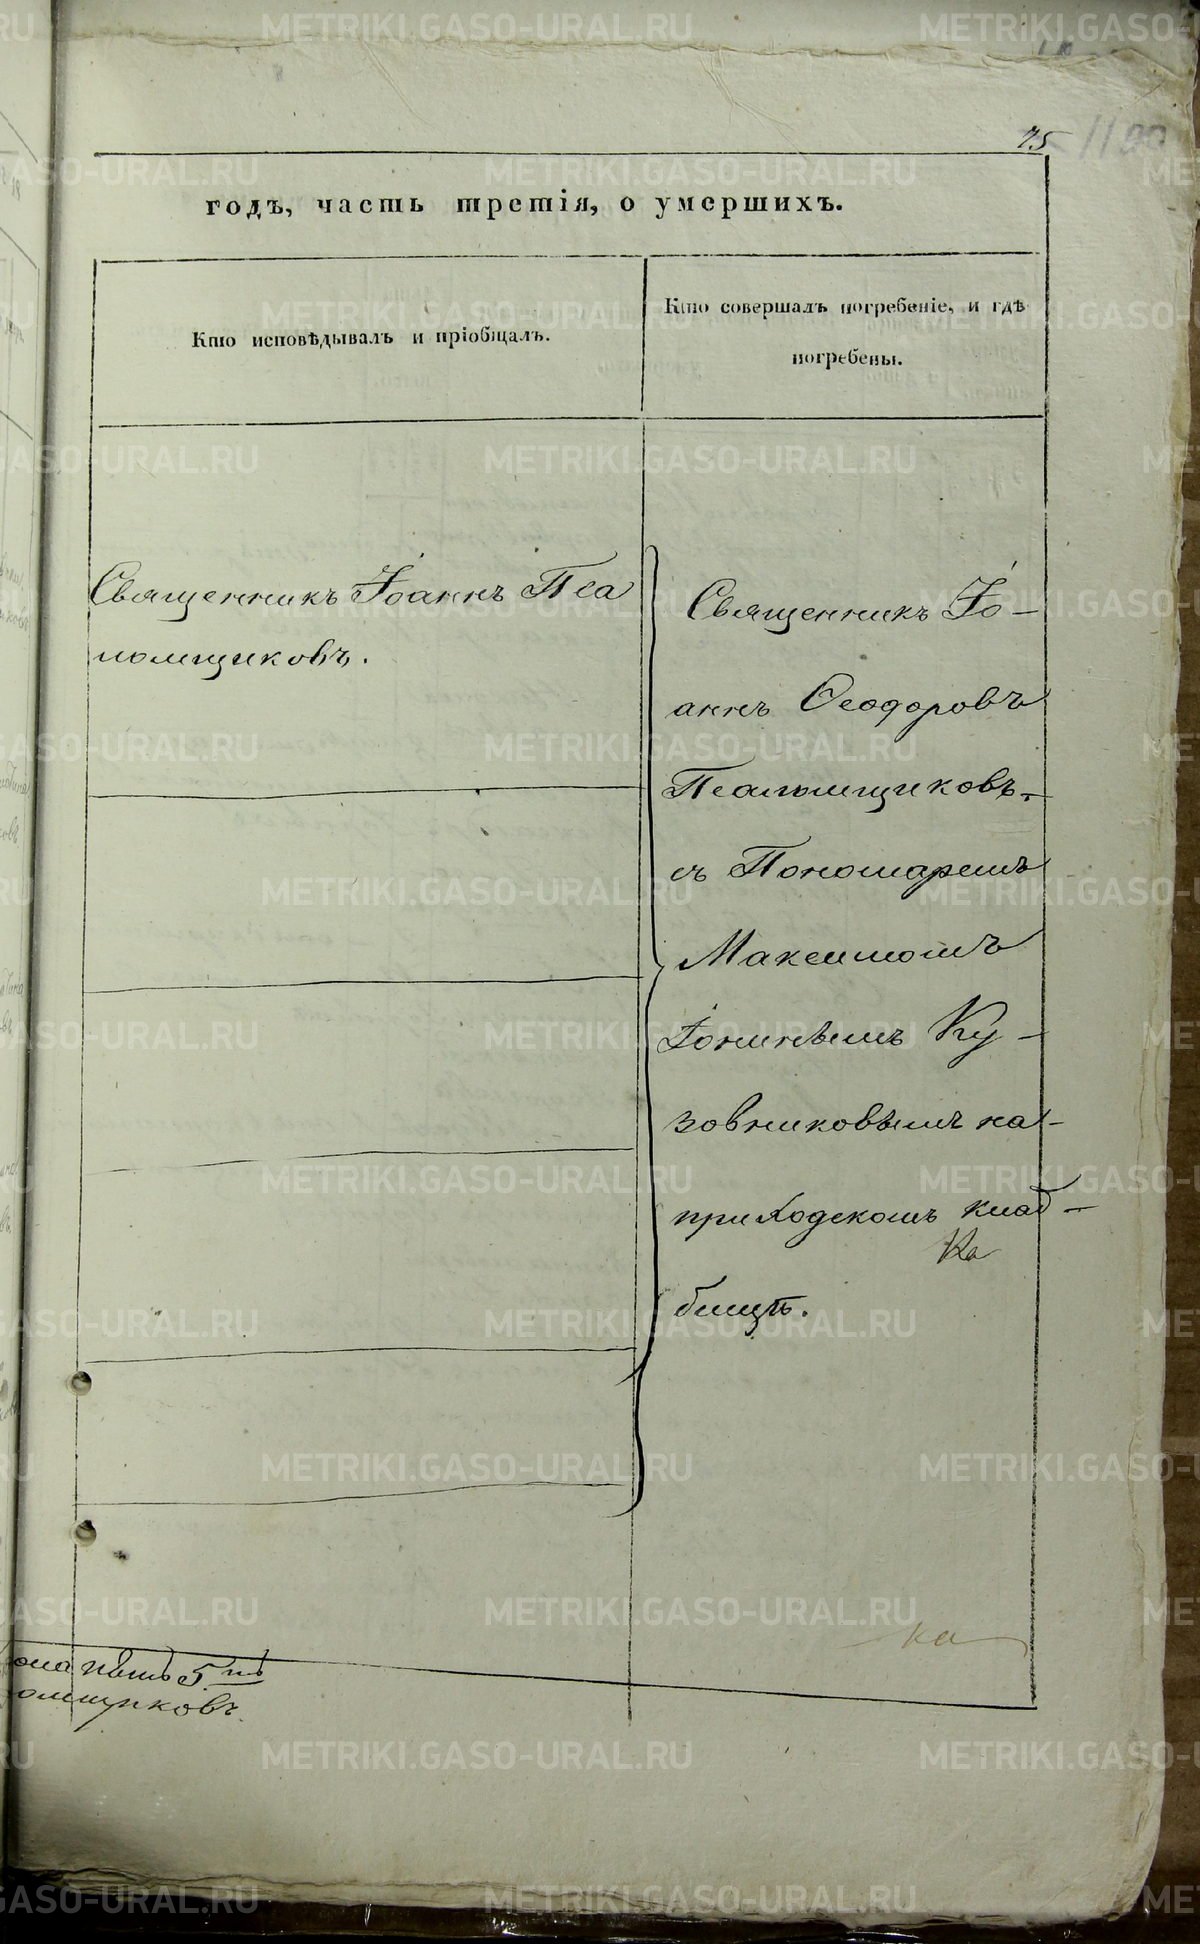 75
1190
годъ, часть третія, о умершихъ.
Кто исповѣдывалъ и пріобщалъ.
Кто совершалъ погребеніе, и гдѣ
погребены.
Священникъ Іоаннъ Пса
ломщиковъ.
Священникъ Іо-
аннъ Ѳеодоровъ
Псаломщиковъ
съ Пономаремъ
Максимомъ
Іонинымъ Ку-
зовниковымъ на
приходскомъ клад-
Ка
бищѣ.
ка
пять 5
омщиковъ.
METRIKI.GASO-URAL.RU